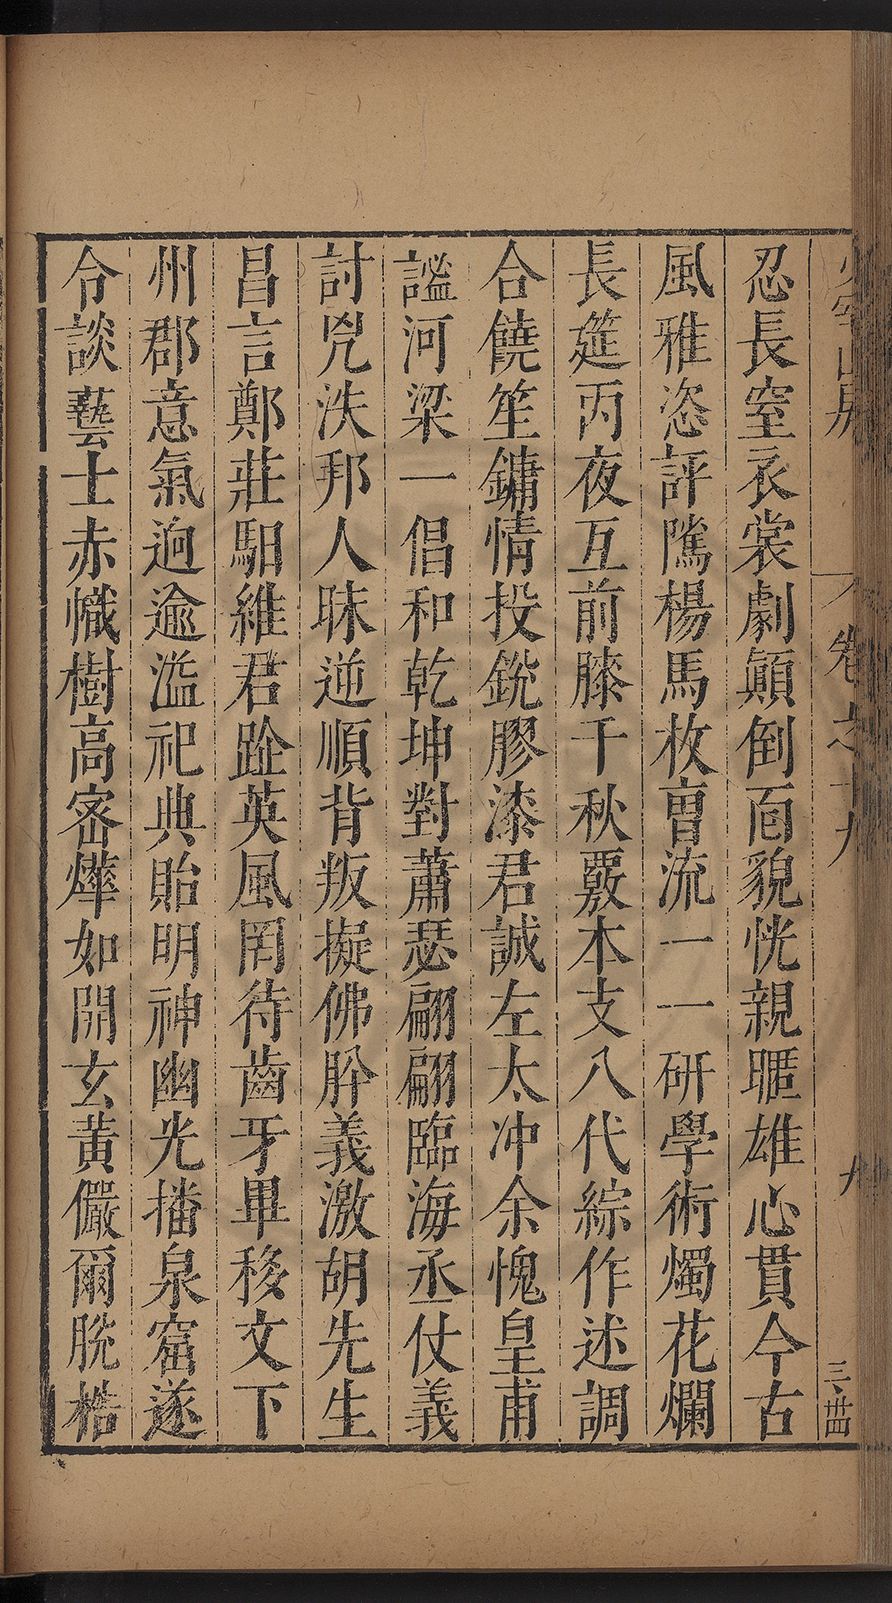 少室山房
卷之十九
九
三、廿
忍長室衣裳劇顚倒面貌恍親暱雄心貫今古
風雅恣評隲楊馬枚曺流一一硏學術燭花爛
長筵丙夜互前膝千秋覈本支八代綜作述調
合饒笙鏞情投銳膠漆君誠左太冲余愧皇甫
謐河梁一倡和乾坤對蕭瑟翩翩臨海丞仗義
討兇泆邦人昧逆順背叛擬佛肸義激胡先生
昌言鄭莊馹維君趾英風罔待齒牙畢移文下
州郡意氣逈逾溢祀典貽明神幽光播泉窟遂
令談藝士赤幟樹高密燁如開玄黃儼爾脫梏